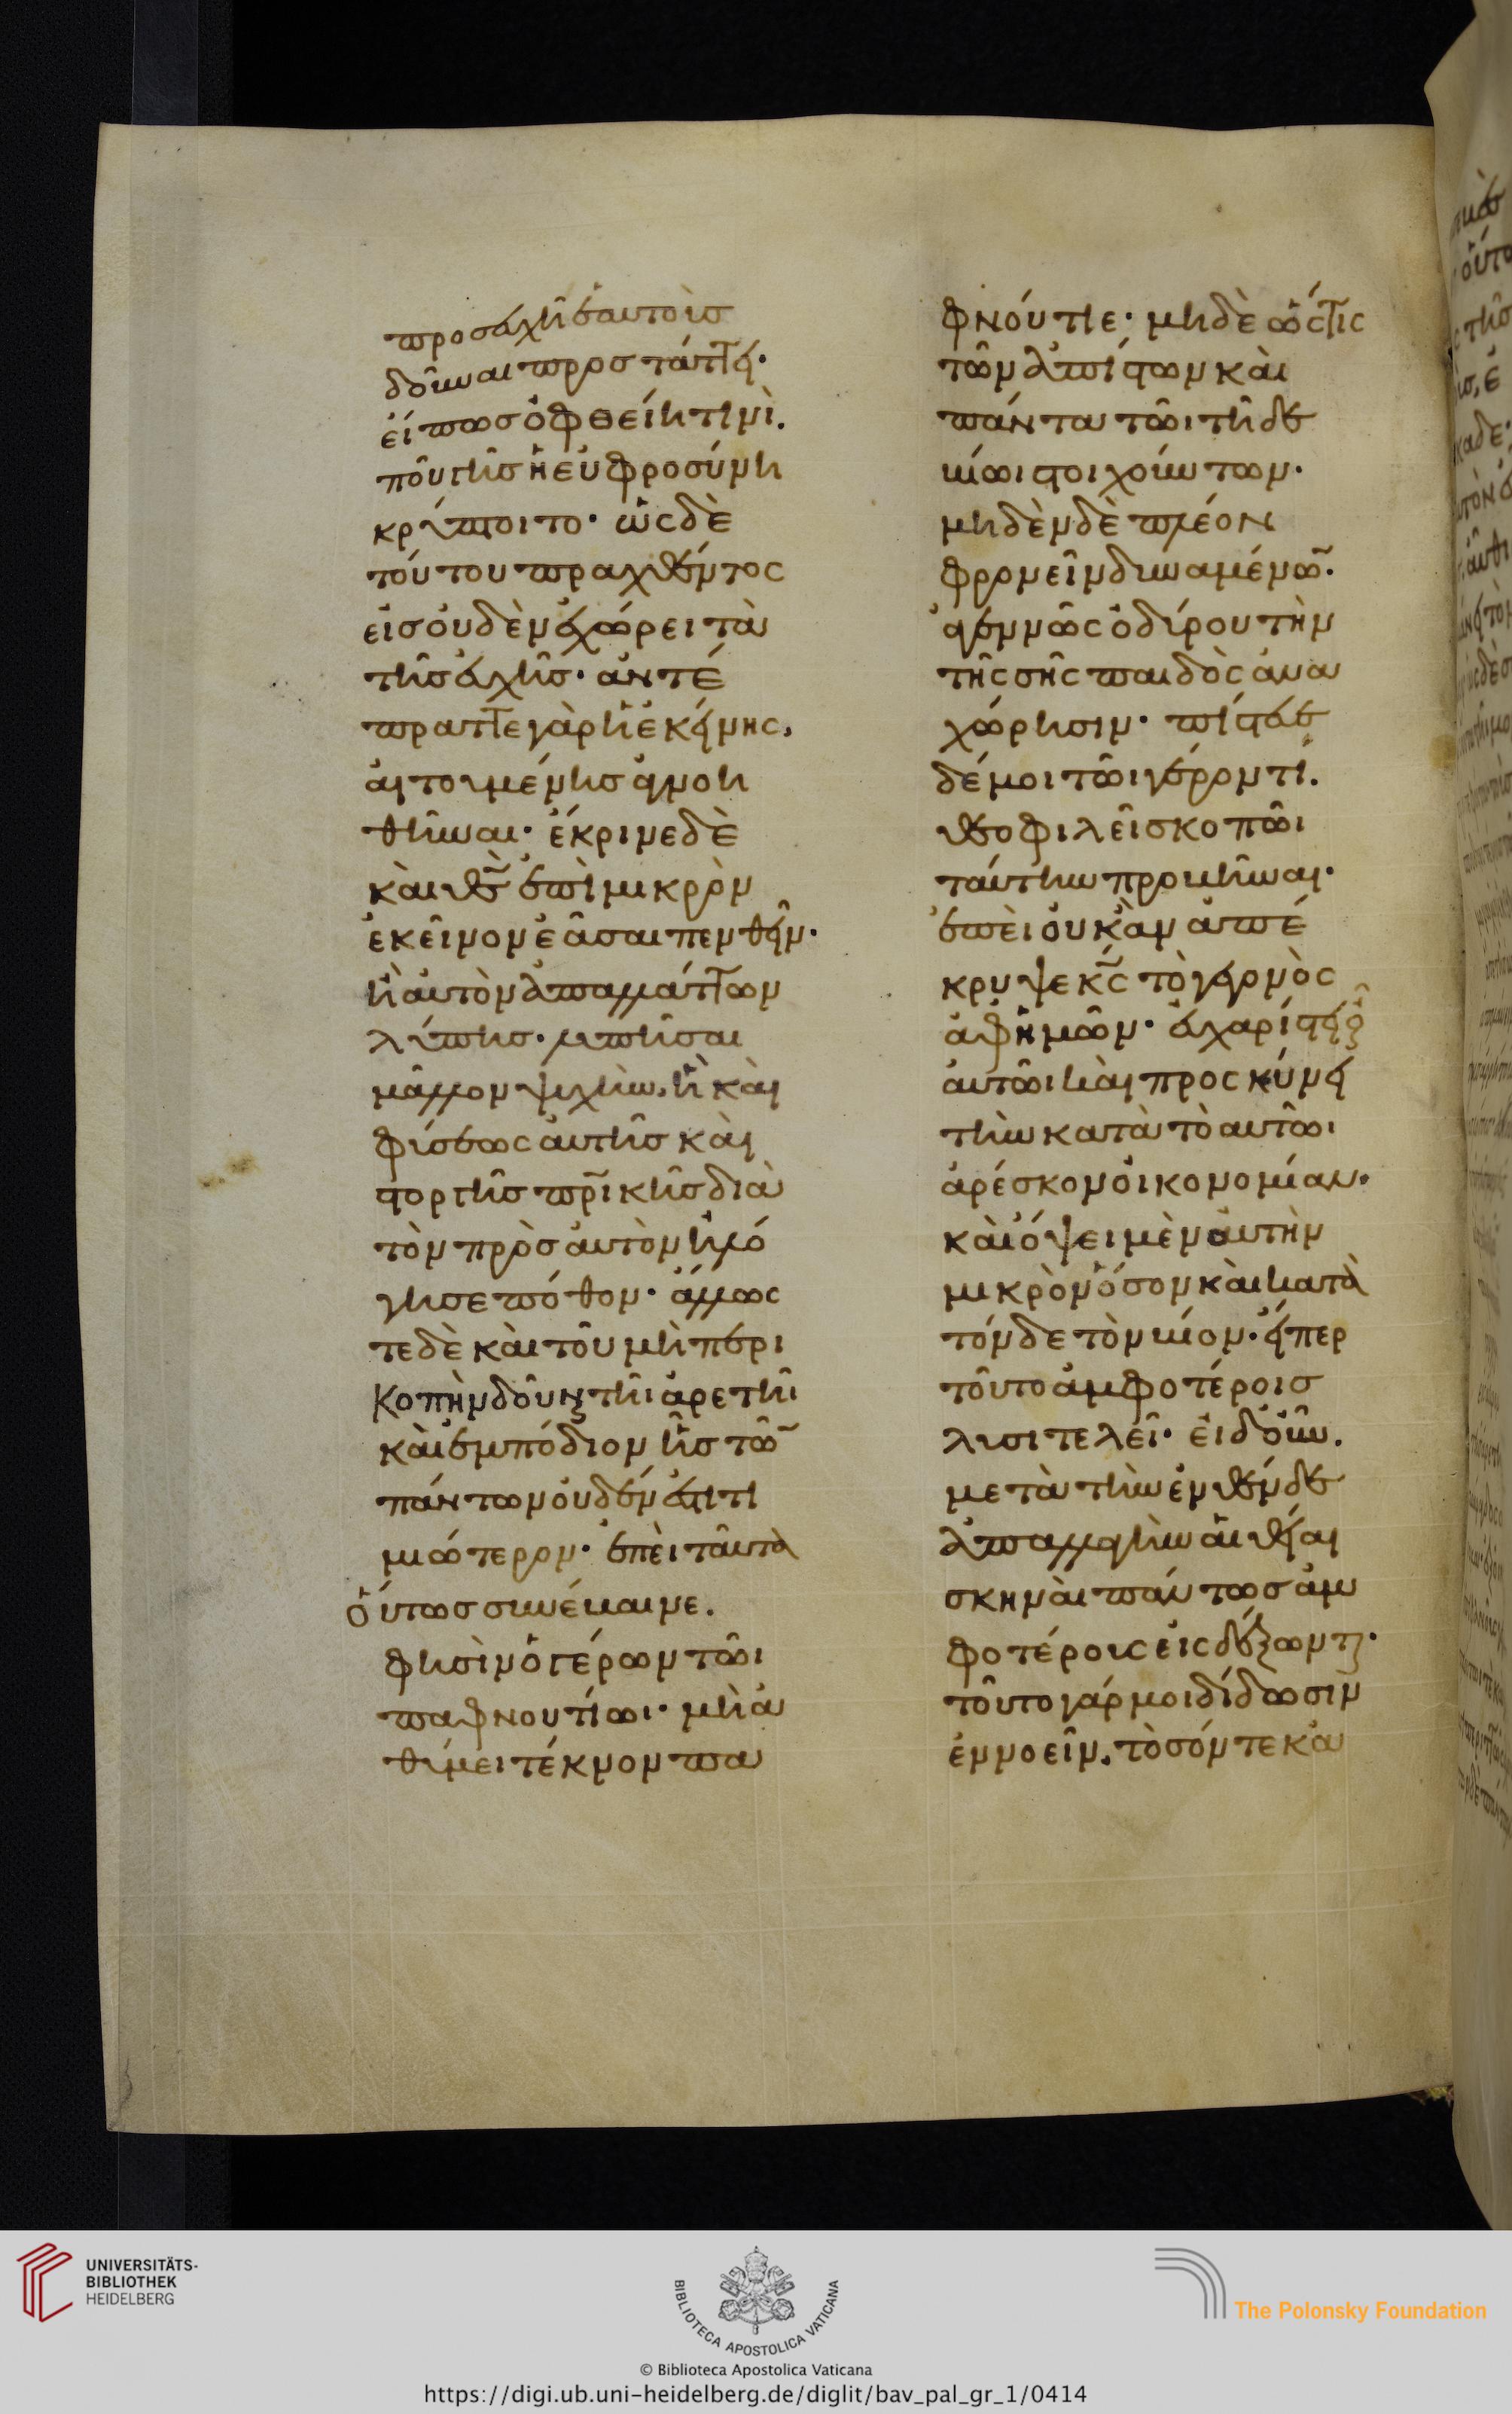 προσευχῆς ἑαυτοὺς
δοῦναι προστάττει·
εἴπως ὀφθείη τινὶ.
ποῦ τῆς ἡ εὐφροσύνη
κρύπτοιτο· ὡς δὲ
τούτου πραχθέντος
εἰς οὐδὲν ἐχώρει τὰ
τῆς εὐχῆς· ἀντέ
πραττε γὰρ ἡ ἐκείνης,
αἰτουμένης μὴ νοη
θῆναι· ἔκρινε δὲ
καὶ θς ἐπὶ μικρὸν
ἐκεῖνον ἐᾶσαι πενθεῖν·
ἢ αὐτὸν ἀπαλλάττων
λύπης· λυπῆσαι
μᾶλλον ψυχὴν, ἢ καὶ
φύσεως αὐτῆς καὶ
στοργῆς πρικῆς διὰ
τὸν πρὸς αὐτὸν ἠλό
γησε πόθον· ἄλλως
τε δὲ καὶ τοῦ μὴ περι
κοπὴν δοῦναι τῆι ἀρετῆι
καὶ ἐμπόδιον ἧς τῶν
πάντων οὐδέν ἐστι τι
μιώτερον· ἐπεὶ ταῦτα
οὕτως συνέβαινε.
φησὶν ὁ γέρων τῶι
παφνουτίωι· μὴ ἀ
θύμει τέκνον πα
φνούτιε· μηδὲ ὥς τις
τῶν ἀπίστων καὶ
πάντα τῶι τῆδε
βίωι στοιχούντων·
μηδὲν δὲ πλέον
φρονεῖν δυναμένων·
στεννῶς ὀδύρου τὴν
τῆς σῆς παιδὸς ἀνα
χώρησιν· πίστευε
δέ μοι τῶι γέροντι.
θεοφιλεῖ σκοπῶι
ταύτην προβῆναι·
ἐπεὶ οὐκ ἂν ἀπέ
κρυψε κς τὸ γεγονὸς
ἀφ ἡμῶν· εὐχαρίστει οὖν
αὐτῶι καὶ προσκύνει
τὴν κατὰ τὸ αὐτῶι
ἀρέσκον οἰκονομίαν·
καὶ ὄψει μὲν αὐτὴν
μικρὸν ὅσον καὶ κατὰ
τόνδε τὸν βίον· εἴπερ
τοῦτο ἀμφοτέροις
λυσιτελεῖ· εἰ δ' οὖν.
μετὰ τὴν ἐνθένδε
ἀπαλλαγὴν αἱ θεῖαι
σκηναὶ πάντως ἀμ
φοτέροις εἰσδέξωνται·
τοῦτο γάρ μοι δίδωσιν
ἐννοεῖν. τὸ σόν τε κἀ
UNIVERSITÄTS-
BIBLIOTHEK
HEIDELBERG
BIBLIOTECA APOSTOLICA VATICANA
© Biblioteca Apostolica Vaticana
The Polonsky Foundation
https://digi.ub.uni-heidelberg.de/diglit/bav_pal_gr_1/0414